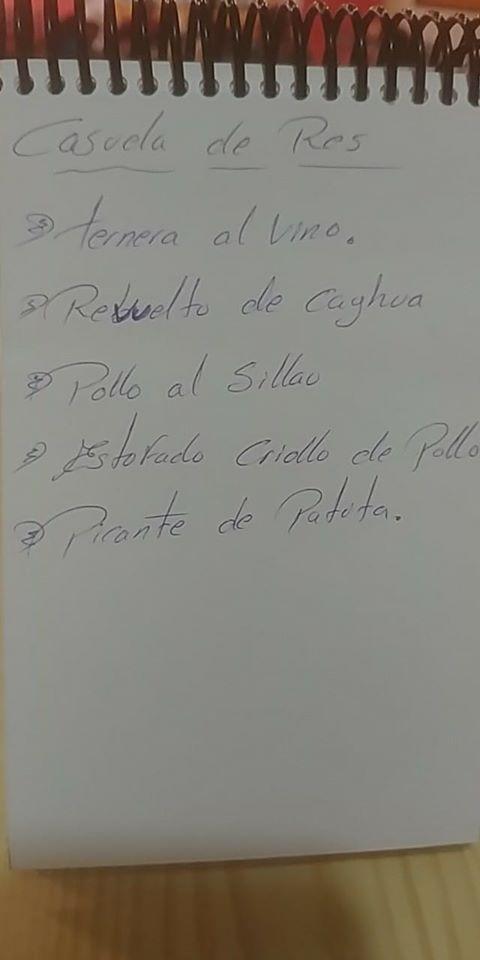 Casuela de Res
ternera al vino.
Revuelto de Caghua
Pollo al Sillao
Estofado Criollo de Pollo
Picante de Patita.